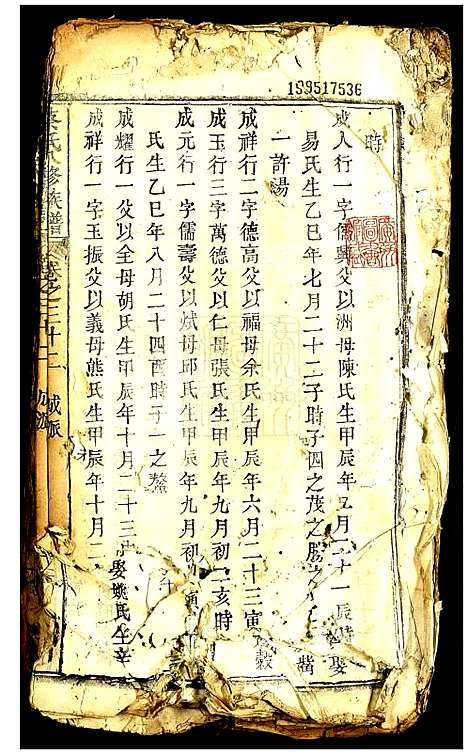 199517536
時
成人行一字儒興父以洲母陳氏生甲辰年五月二十一辰時娶
易氏生乙巳年七月二十二子時子四之茂之勝之
一許湯
成祥行二字德高父以福母余氏生甲辰年六月二十三寅
成玉行三字萬德父以仁母張氏生甲辰年九月初二亥時
成元行一字儒壽父以斌母邱氏生甲辰年九月初
氏生乙巳年八月二十四酉時子一之鰲
成耀行一父以全母胡氏生甲辰年十月二十三 娶姚氏生辛
成祥行一字玉振父以義母熊氏生甲辰年十月二
氏八修族譜 卷之三十二